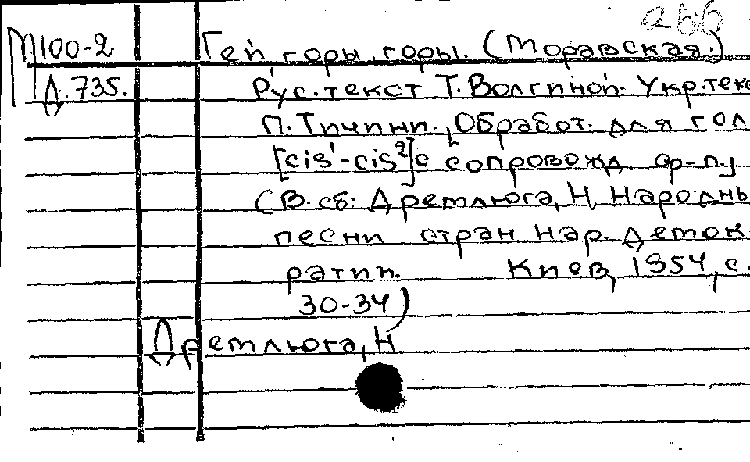 абб
М100-2 Гей горы, горы. (Моравская.)
Д.735. Рус.текст Т.Волгиной. Укр.текс
П. Тичини. [Обработ. для гол
[cis¹-cis²] с сопровожд. ф-п.]
(В сб: Дремлюга, Н. Народны
песни стран нар. демок
ратии. Киев, 1954, с.
30-34)
Дремлюга, Н